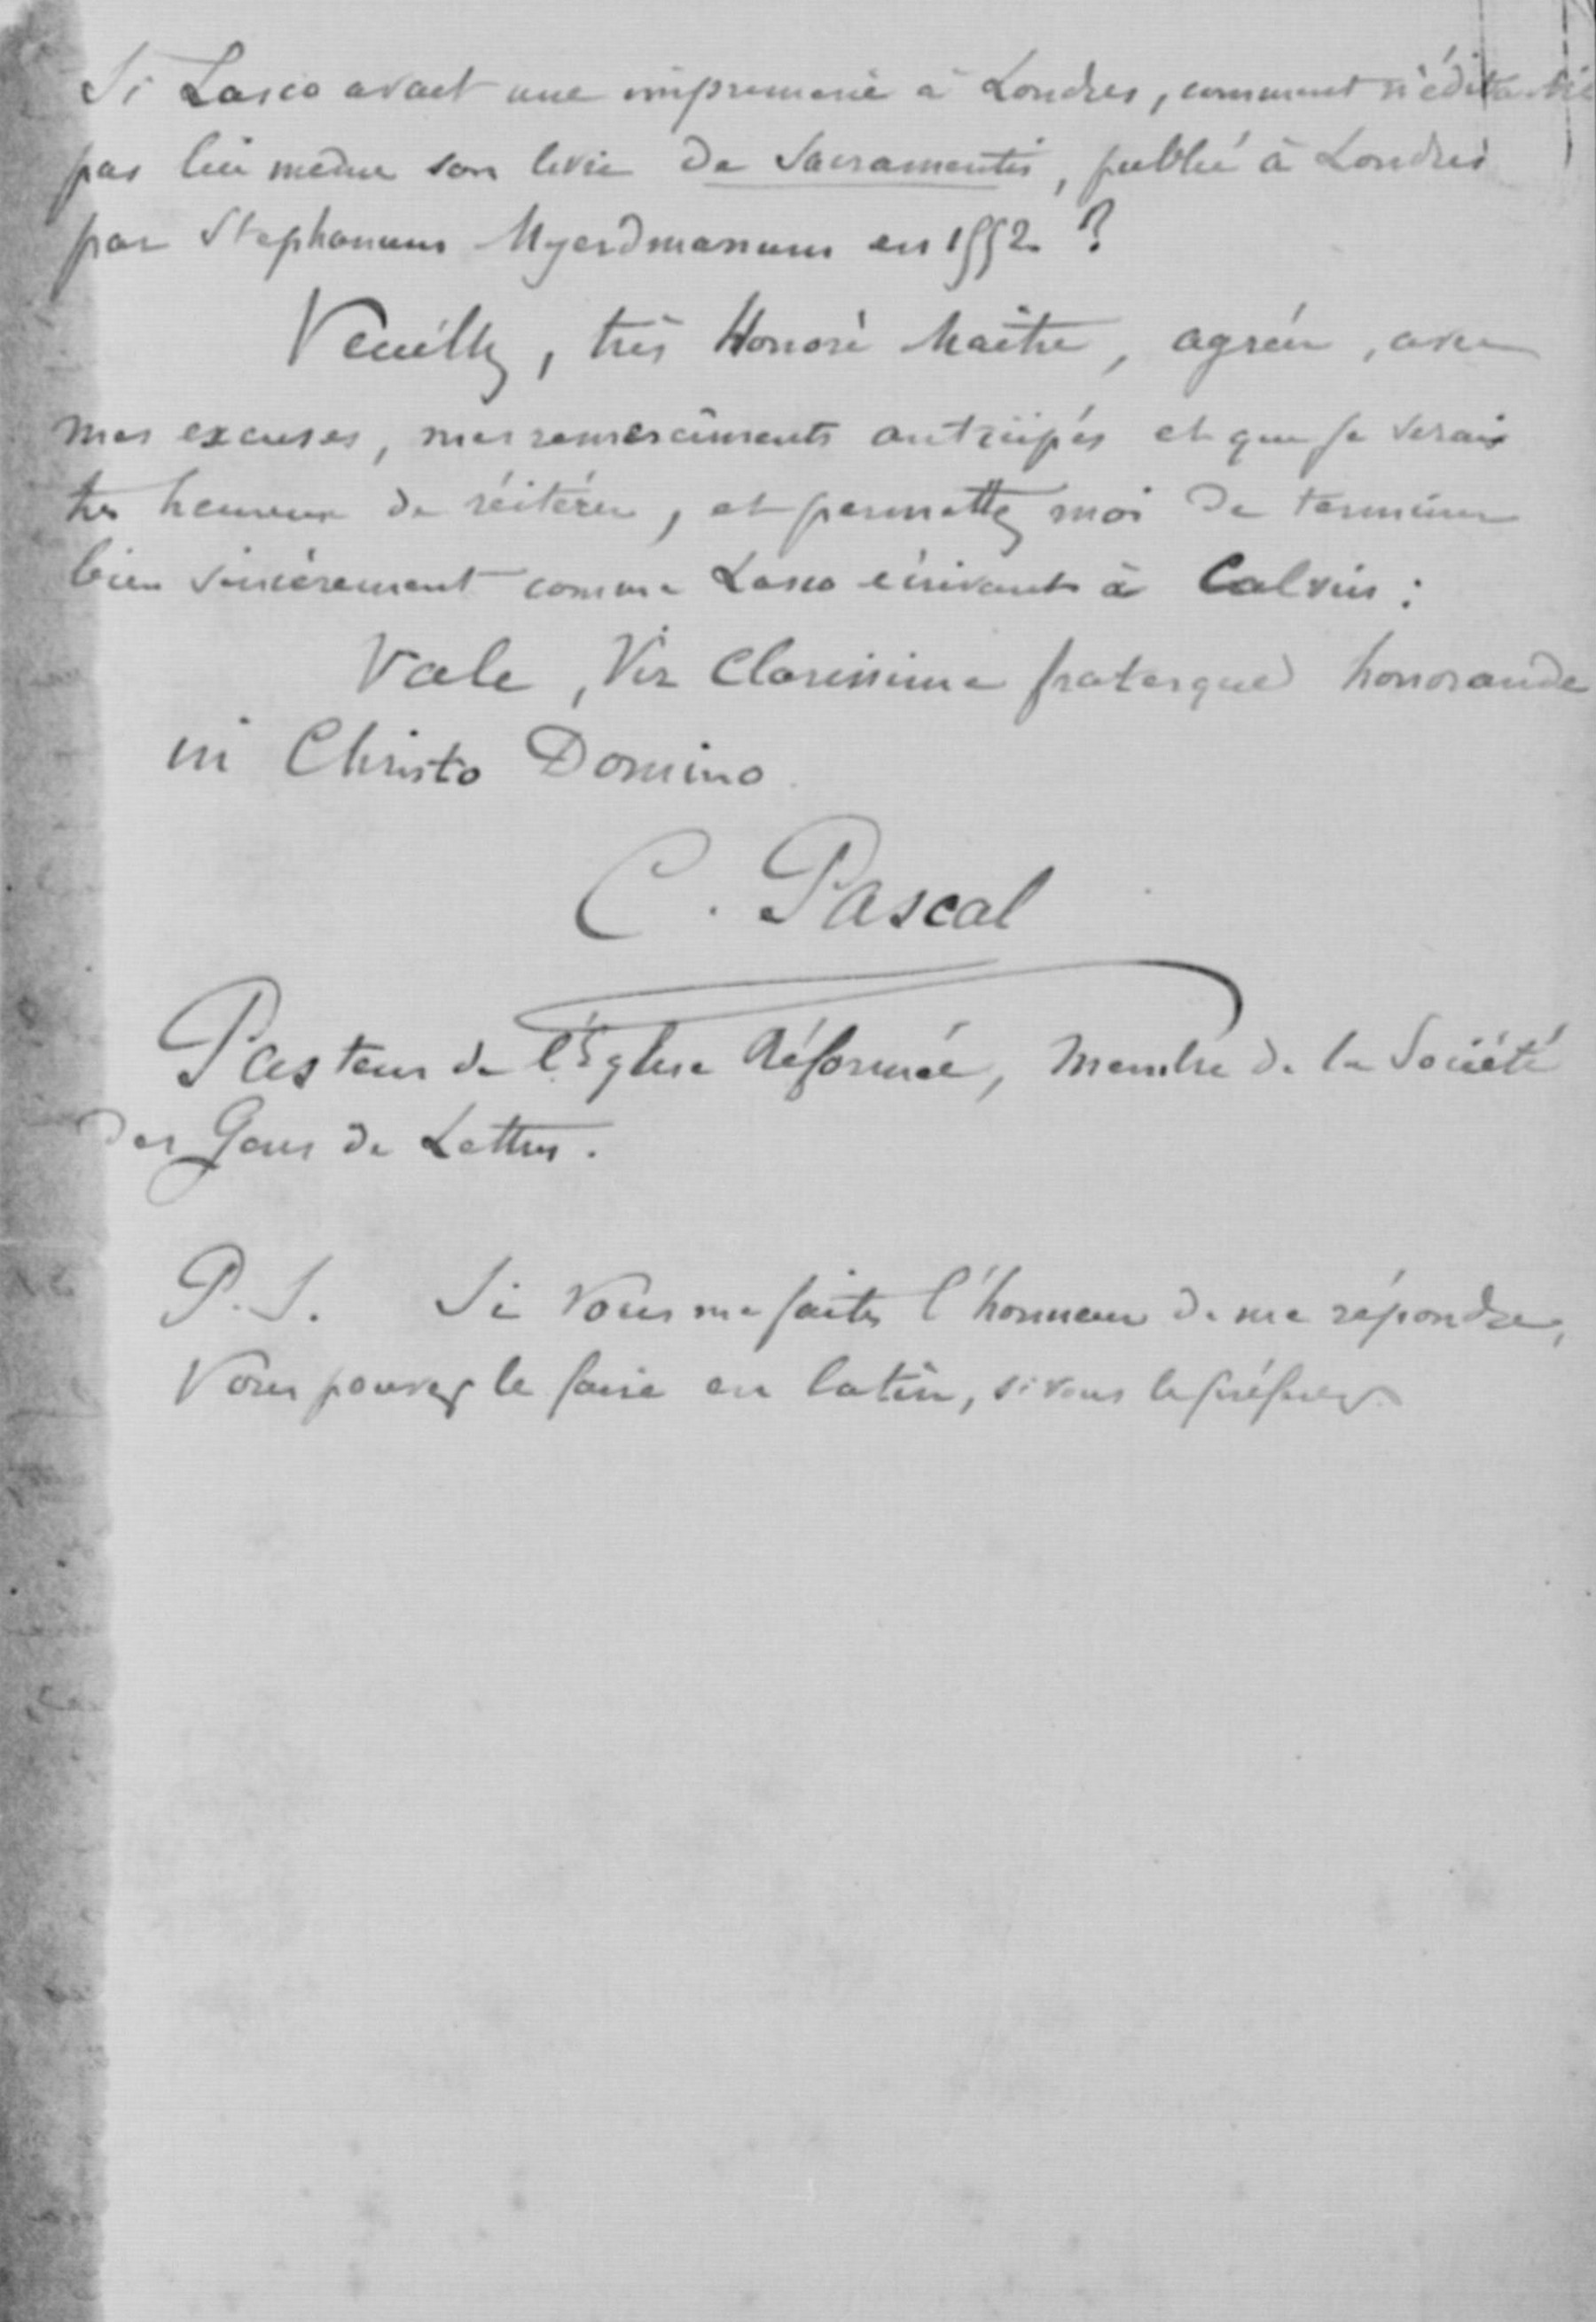 Si Lasco avait une imprimerie à Londres, comment n'édita-t-il
pas lui même son livre De Sacramentis, publié à Londres
par Stephanum Myerdmanum en 1552 ?
Veuillez, très Honoré Maître, agréer, avec
mes excuses, mes remerciments anticipés et que je serais
très heureux de réitérer, et permettez moi de terminer
bien sincèrement comme Lasco écrivant à Calvin :
Vale, Vir Clarissime fraterque honorande
in Christo Domino
C. Pascal
Pasteur de l'Église Réformée, Membre de la Société
des Gens de Lettres.
P. S. Si vous me faites l'honneur de me répondre,
Vous pouvez le faire en latin, si vous le préférez.